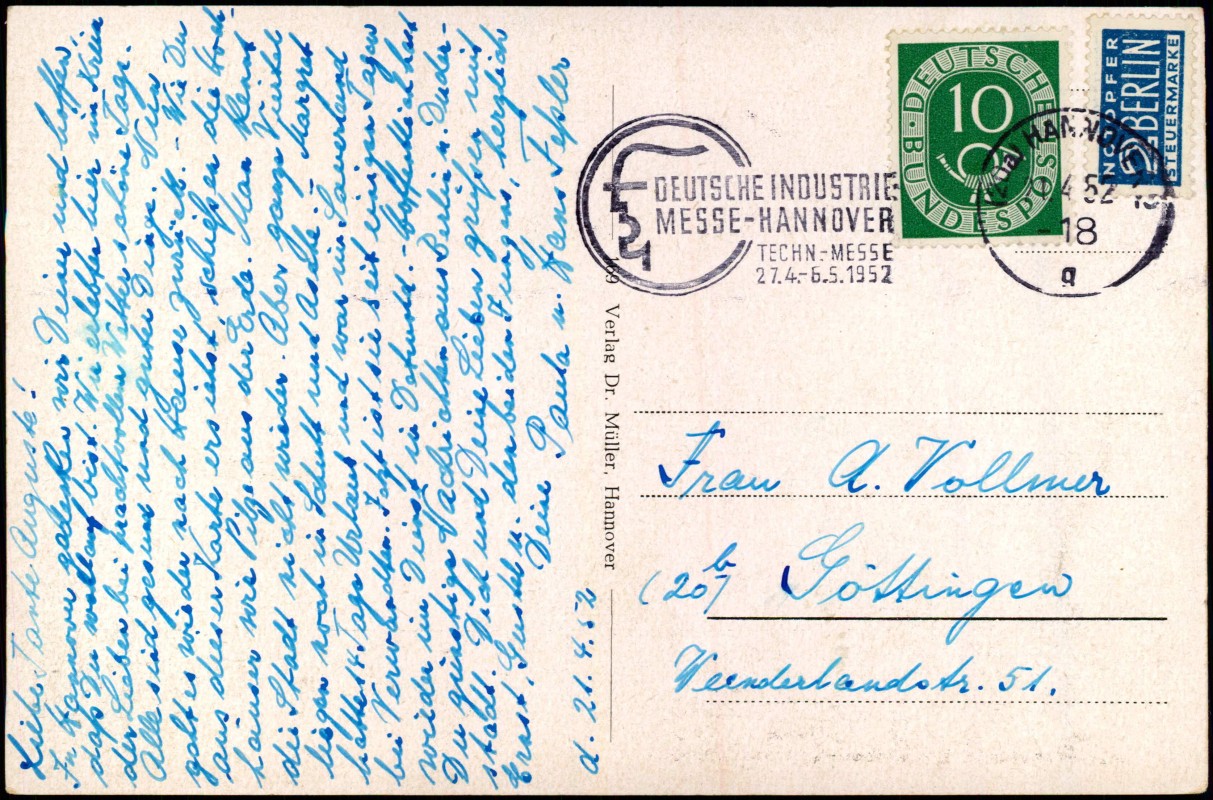 Liebe Tante Auguste!
In Hannover gedenken wir Deiner und hoffen,
daß Du wohlauf bist. Wir erlebten hier im Kreise
der Lieben bei prachtvollem Wetter schöne Tage.
Alle sind gesund und guter Dinge. Nun
geht es wieder nach Hause zurück. - Wie Du
aus dieser Karte ersiehst, schießen die Hoch-
häuser wie Pilze aus der Erde. Man kennt
die Stadt nicht wieder. Aber ganze Viertel
liegen noch in Schutt und Asche. - Margret
hatte 14 Tage Urlaub und war im Sauerland
bei Verwandten. Jetzt ist sie seit einigen Tagen
wieder im Dienst in Detmold. - Hoffentlich hast
Du günstige Nachrichten aus Berlin u. Duder-
stadt. Dich und Deine Lieben grüßen mit
Ernst, Gustel u. den beiden Jungens, herzlich
Deine Paula u. Hans
d. 21.4.52
769 Verlag Dr. Müller, Hannover
DEUTSCHE INDUSTRIE
MESSE-HANNOVER
TECHN.-MESSE
27.4.-6.5.1952
DEUTSCHE
BUNDESPOST
10
NOTOPFER
2 BERLIN
STEUERMARKE
HANNOVER
4 52
-18
g
Frau A. Vollmer
(20b) Göttingen
Weenderlandstr. 51.